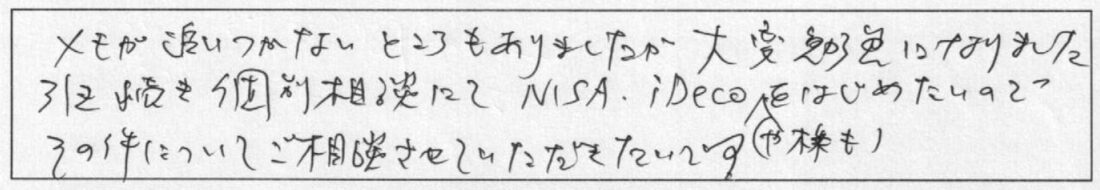 メモが追いつかないところもありましたが 大変勉強になりました
引き続き個別相談にて NISA. iDeco をはじめたいので
その件についてご相談させていただきたいです (や株も)